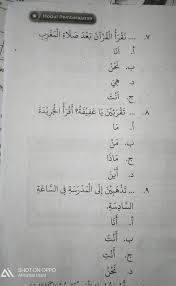 Modul Pembelajaran
٧. ... نَقْرَأُ الْقُرْآنَ بَعْدَ صَلَاةِ الْمَغْرِبِ
أ. أَنَا
ب. نَحْنُ
د. هِيَ
ج. أَنْتَ
٨. ... تَقْرَئِيْنَ يَا عَفِيْفَةُ؟ أَقْرَأُ الْجَرِيْدَةَ
أ. مَا
ب. مَنْ
ج. مَاذَا
د. أَيْنَ
٩. ... تَذْهَبِيْنَ إِلَى الْمَدْرَسَةِ فِي السَّاعَةِ
السَّادِسَةِ.
أ. أَنَا
ب. أَنْتِ
ج. أَنْتَ
د. نَحْنُ
SHOT ON OPPO